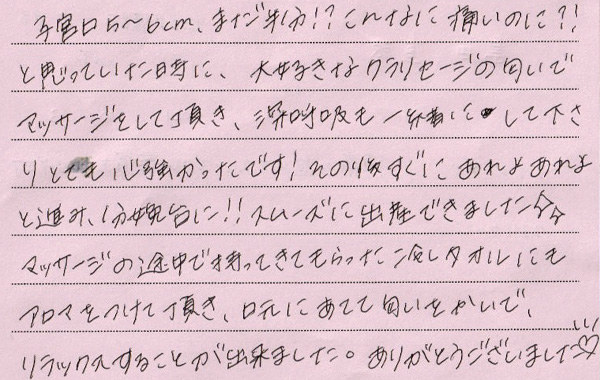 子宮口5～6cm、まだ半分!?こんなに痛いのに?!
と思っていた時に、大好きなクラリセージの匂いで
マッサージをして頂き、深呼吸も一緒にして下さ
りとても心強かったです!その後すぐにあれよあれよ
と進み、分娩台に!!スムーズに出産できました☆☆
マッサージの途中で持ってきてもらった冷しタオルにも
アロマをつけて頂き、口元にあてて匂いをかいで、
リラックスすることが出来ました。ありがとうございました♡